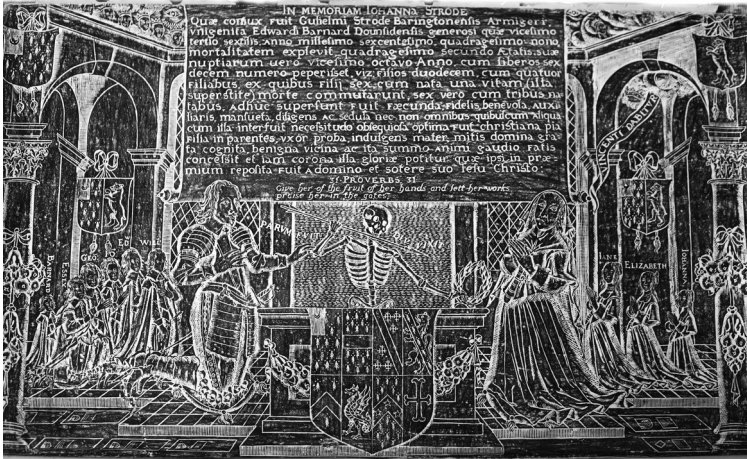 IN MEMORIAM IOHANNA STRODE
Quæ coniux Fuit Gulielmi Strode Baringtonensis Armigeri
vnigenita Edwardi Barnard Dounsidensis generosi quæ vicesimo
tertio sextilis, anno millesimo sexcentesimo quadragesimo nono,
mortalitatem explevit, quadragesimo secundo Ætatis suæ
nuptiarum uero vicesimo octavo Anno, cum liberos sex
decem numero peperisset, viz: filios duodecem, cum quatuor
Filiabus, ex quibus Filij sex, cum nata una vitam (illa
superstite) morte commutarunt, sex vero cum tribus na
tabus, adhuc supersunt Fuit Fæcunda, fidelis, benevola, auxi
liaris, mansueta, diligens ac sedula nec non omnibus quibuscum aliqua
cum illa interfuit necessitudo obsequiosa optima fuit christiana, pia
Filia in parentes, vxor proba, indulgens mater, mitis domina, gra
ta cognata, benigna vicina ac ita summo animi gaudio Fatis
concessit et iam corona illa gloriæ potitur quæ ipsi in præ
mium reposita Fuit A domino et sotere suo Iesu Christo:
31 PROVERBS, 31
Give her of the fruit of her hands and lett her works
praise her in the gates:
VINCENTI DABITUR
PARVM FUIT
BARNARD
ESSEX
GEO
IO
ED
WILL
IANE
ELIZABETH
IOHANNA